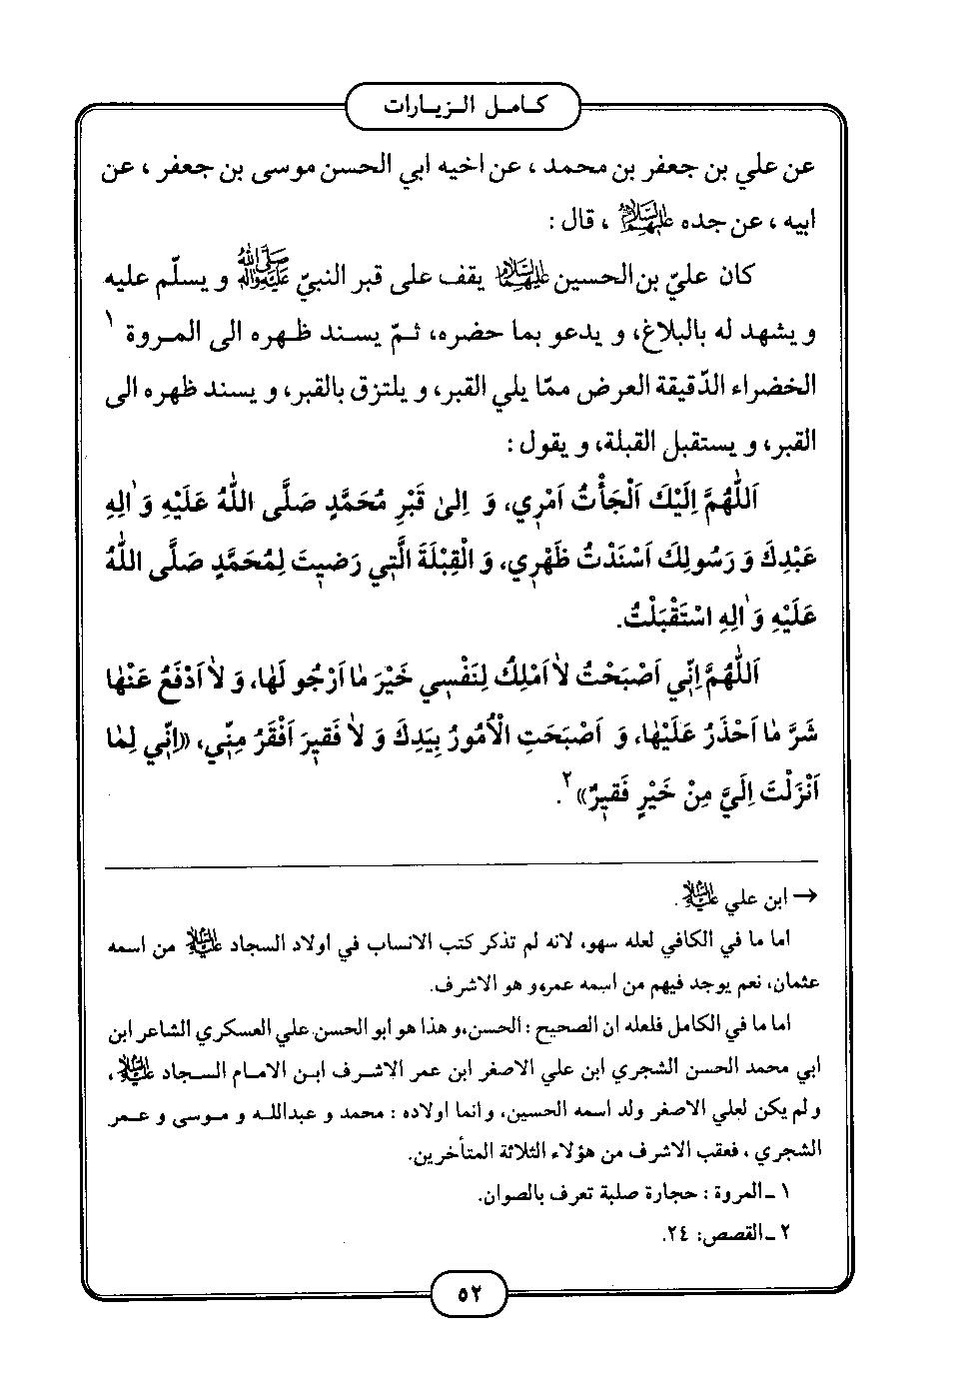 كامل الزيارات
عن علي بن جعفر بن محمد ، عن اخيه ابي الحسن موسى بن جعفر ، عن
ابيه ، عن جده عليهم السلام ، قال :
كان عليّ بن الحسين عليهما السلام يقف على قبر النبيّ صلى الله عليه وآله و يسلّم عليه
و يشهد له بالبلاغ، و يدعو بما حضره، ثمّ يسند ظهره الى المروة ١
الخضراء الدّقيقة العرض ممّا يلي القبر، و يلتزق بالقبر، و يسند ظهره الى
القبر، و يستقبل القبلة، و يقول :
اَللّٰهُمَّ اِلَيْكَ اَلْجَأْتُ اَمْرِي، وَ اِلىٰ قَبْرِ مُحَمَّدٍ صَلَّى اللّٰهُ عَلَيْهِ وَ اٰلِهِ
عَبْدِكَ وَ رَسُولِكَ اَسْنَدْتُ ظَهْرِي، وَ الْقِبْلَةَ الَّتِي رَضِيتَ لِمُحَمَّدٍ صَلَّى اللّٰهُ
عَلَيْهِ وَ اٰلِهِ اسْتَقْبَلْتُ.
اَللّٰهُمَّ اِنِّي اَصْبَحْتُ لاٰ اَمْلِكُ لِنَفْسِي خَيْرَ مٰا اَرْجُو لَهٰا، وَ لاٰ اَدْفَعُ عَنْهٰا
شَرَّ مٰا اَحْذَرُ عَلَيْهٰا، وَ اَصْبَحَتِ الْاُمُورُ بِيَدِكَ وَ لاٰ فَقِيرَ اَفْقَرُ مِنِّي، «اِنِّي لِمٰا
اَنْزَلْتَ اِلَيَّ مِنْ خَيْرٍ فَقِيرٌ» ٢.
→ ابن علي عليه السلام.
اما ما في الكافي لعله سهو، لانه لم تذكر كتب الانساب في اولاد السجاد عليه السلام من اسمه
عثمان، نعم يوجد فيهم من اسمه عمر، و هو الاشرف.
اما ما في الكامل فلعله ان الصحيح : الحسن، و هذا هو ابو الحسن علي العسكري الشاعر ابن
ابي محمد الحسن الشجري ابن علي الاصغر ابن عمر الاشرف ابن الامام السجاد عليه السلام ،
و لم يكن لعلي الاصغر ولد اسمه الحسين، و انما اولاده : محمد و عبدالله و موسى و عمر
الشجري ، فعقب الاشرف من هؤلاء الثلاثة المتأخرين.
١ ـ المروة : حجارة صلبة تعرف بالصوان.
٢ ـ القصص: ٢٤.
٥٢